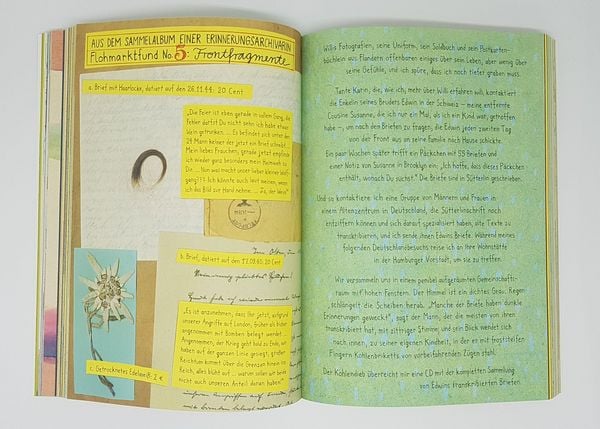 AUS DEM SAMMELALBUM EINER ERINNERUNGSARCHIVARIN
Flohmarktfund No. 5: Frontfragmente
a. Brief mit Haarlocke, datiert auf den 26.11.44: 20 Cent
„Die Feier ist eben gerade in vollem Gang, die
Fehler darfst Du nicht sehn ich habe etwas
Wein getrunken. ... Es befindet sich unter den
24 Mann keiner der jetzt ein Brief schreibt...
Mein liebes Frauchen, gerade jetzt empfinde
ich wieder ganz besonders mein Heimweh zu
Dir. ... Nun was macht unser lieber kleiner Wolf-
gang!?!? Ich könnte auch laut weinen, wenn
ich das Bild zur Hand nehme. ... Ja, der Wein“
b. Brief, datiert auf den 17.09.40: 20 Cent
„Es ist anzunehmen, dass Ihr jetzt, aufgrund
unserer Angriffe auf London, früher als bisher
angenommen mit Bomben belegt werdet. ...
Angenommen, der Krieg geht bald zu Ende, wir
haben auf der ganzen Linie gesiegt, großer
Reichtum kommt über die Grenzen hinein ins
Reich, alles blüht auf ... warum sollen wir beide
nicht auch unseren Anteil daran haben?“
c. Getrocknetes Edelweiß: 2 €
Willis Fotografien, seine Uniform, sein Soldbuch und sein Postkarten-
büchlein aus Flandern offenbaren einiges über sein Leben, aber wenig über
seine Gefühle, und ich spüre, dass ich noch tiefer graben muss.
Tante Karin, die, wie ich, mehr über Willi erfahren will, kontaktiert
die Enkelin seines Bruders Edwin in der Schweiz – meine entfernte
Cousine Susanne, die ich nur ein Mal, als ich ein Kind war, getroffen
habe –, um nach den Briefen zu fragen, die Edwin jeden zweiten Tag
von der Front aus an seine Familie nach Hause schickte.
Ein paar Wochen später trifft ein Päckchen mit 55 Briefen und
einer Notiz von Susanne in Brooklyn ein: „Ich hoffe, dass dieses Päckchen
enthält, wonach Du suchst.“ Die Briefe sind in Sütterlin geschrieben.
Und so kontaktiere ich eine Gruppe von Männern und Frauen in
einem Altenzentrum in Deutschland, die Sütterlinschrift noch
entziffern können und sich darauf spezialisiert haben, alte Texte zu
transkribieren, und ich sende ihnen Edwins Briefe. Während meines
folgenden Deutschlandbesuchs reise ich an ihre Wohnstätte
in der Hamburger Vorstadt, um sie zu treffen.
Wir versammeln uns in einem pembel aufgeräumten Gemeinschafts-
raum mit hohen Fenstern. Der Himmel ist ein dichtes Grau. Regen
schlängelt die Scheiben herab. „Manche der Briefe haben dunkle
Erinnerungen geweckt“, sagt der Mann, der die meisten von ihnen
transkribiert hat, mit zittriger Stimme und sein Blick wendet sich
nach innen, zu seiner eigenen Kindheit, in der er mit froststeifen
Fingern Kohlenbriketts von vorbeifahrenden Zügen stahl.
Der Kohlendieb überreicht mir eine CD mit der kompletten Sammlung
von Edwins transkribierten Briefen.